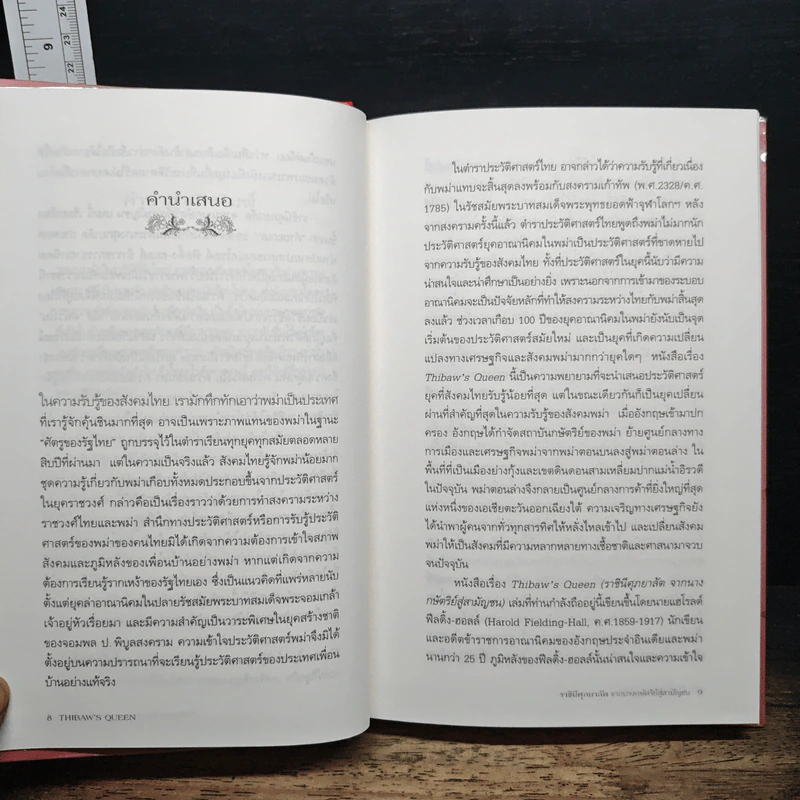 9
24
23
22
คำนำเสนอ
ในความรับรู้ของสังคมไทย เรามักทึกทักเอาว่าพม่าเป็นประเทศ
ที่เรารู้จักคุ้นชินมากที่สุด อาจเป็นเพราะภาพแทนของพม่าในฐานะ
“ศัตรูของรัฐไทย” ถูกบรรจุไว้ในตำราเรียนทุกยุคทุกสมัยตลอดหลาย
สิบปีที่ผ่านมา แต่ในความเป็นจริงแล้ว สังคมไทยรู้จักพม่าน้อยมาก
ชุดความรู้เกี่ยวกับพม่าเกือบทั้งหมดประกอบขึ้นจากประวัติศาสตร์
ในยุคราชวงศ์ กล่าวคือเป็นเรื่องราวว่าด้วยการทำสงครามระหว่าง
ราชวงศ์ไทยและพม่า สำนึกทางประวัติศาสตร์หรือการรับรู้ประวัติ
ศาสตร์ของพม่าของคนไทยมิได้เกิดจากความต้องการเข้าใจสภาพ
สังคมและภูมิหลังของเพื่อนบ้านอย่างพม่า หากแต่เกิดจากความ
ต้องการเรียนรู้รากเหง้าของรัฐไทยเอง ซึ่งเป็นแนวคิดที่แพร่หลายนับ
ตั้งแต่ยุคล่าอาณานิคมในปลายรัชสมัยพระบาทสมเด็จพระจอมเกล้า
เจ้าอยู่หัวเรื่อยมา และมีความสำคัญเป็นวาระพิเศษในยุคสร้างชาติ
ของจอมพล ป. พิบูลสงคราม ความเข้าใจประวัติศาสตร์พม่าจึงมิได้
ตั้งอยู่บนความปรารถนาที่จะเรียนรู้ประวัติศาสตร์ของประเทศเพื่อน
บ้านอย่างแท้จริง
8 THIBAW'S QUEEN
ในตำราประวัติศาสตร์ไทย อาจกล่าวได้ว่าความรู้ที่เกี่ยวเนื่อง
กับพม่าแทบจะสิ้นสุดลงพร้อมกับสงครามเก้าทัพ (พ.ศ.2328/ค.ศ.
1785) ในรัชสมัยพระบาทสมเด็จพระพุทธยอดฟ้าจุฬาโลกฯ หลัง
จากสงครามครั้งนี้แล้ว ตำราประวัติศาสตร์ไทยพูดถึงพม่าไม่มากนัก
ประวัติศาสตร์ยุคอาณานิคมในพม่าเป็นประวัติศาสตร์ที่ขาดหายไป
จากความรับรู้ของสังคมไทย ทั้งที่ประวัติศาสตร์ในยุคนี้นับว่ามีความ
น่าสนใจและน่าศึกษาเป็นอย่างยิ่ง เพราะนอกจากการเข้ามาของระบอบ
อาณานิคมจะเป็นปัจจัยหลักที่ทำให้สงครามระหว่างไทยกับพม่าสิ้นสุด
ลงแล้ว ช่วงเวลาเกือบ 100 ปีของยุคอาณานิคมในพม่ายังนับเป็นจุด
เริ่มต้นของประวัติศาสตร์สมัยใหม่ และเป็นยุคที่เกิดความเปลี่ยน
แปลงทางเศรษฐกิจและสังคมพม่ามากกว่ายุคใดๆ หนังสือเรื่อง
Thibaw's Queen นี้เป็นความพยายามที่จะนำเสนอประวัติศาสตร์
ยุคที่สังคมไทยรับรู้น้อยที่สุด แต่ในขณะเดียวกันก็เป็นยุคเปลี่ยน
ผ่านที่สำคัญที่สุดในความรับรู้ของสังคมพม่า เมื่ออังกฤษเข้ามาปก
ครอง อังกฤษได้กำจัดสถาบันกษัตริย์ของพม่า ย้ายศูนย์กลางทาง
การเมืองและเศรษฐกิจพม่าจากพม่าตอนบนลงสู่พม่าตอนล่าง ใน
พื้นที่ที่เป็นเมืองย่างกุ้งและเขตดินดอนสามเหลี่ยมปากแม่น้ำอิรวดี
ในปัจจุบัน พม่าตอนล่างจึงกลายเป็นศูนย์กลางการค้าที่ยิ่งใหญ่ที่สุด
แห่งหนึ่งของเอเชียตะวันออกเฉียงใต้ ความเจริญทางเศรษฐกิจยัง
ได้นำพาผู้คนจากทั่วทุกสารทิศให้หลั่งไหลเข้าไป และเปลี่ยนสังคม
พม่าให้เป็นสังคมที่มีความหลากหลายทางเชื้อชาติและศาสนามาจวบ
จนปัจจุบัน
หนังสือเรื่อง Thibaw's Queen (ราชินีศุภยาลัต จากนาง
กษัตริย์สู่สามัญชน) เล่มที่ท่านกำลังถืออยู่นี้เขียนขึ้นโดยนายแฮโรลด์
ฟีลดิ้ง-ฮอลล์ (Harold Fielding-Hall, ค.ศ.1859-1917) นักเขียน
และอดีตข้าราชการอาณานิคมของอังกฤษประจำอินเดียและพม่า
นานกว่า 25 ปี ภูมิหลังของฟีลดิ้ง-ฮอลล์นั้นน่าสนใจและความเข้าใจ
ราชินีศุภยาลัต จากนางกษัตริย์สู่สามัญชน 9